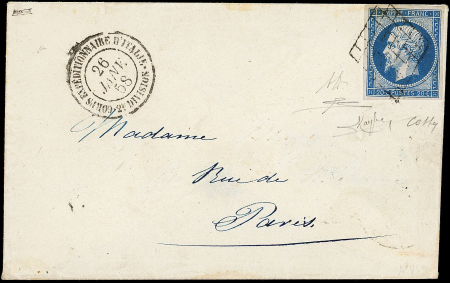 CORPS EXPÉDITIONNAIRE D'ITALIE 2E DIVISION
26
JANV.
58
FRANC
20 POSTES 20
Madame
Rue de
Paris.